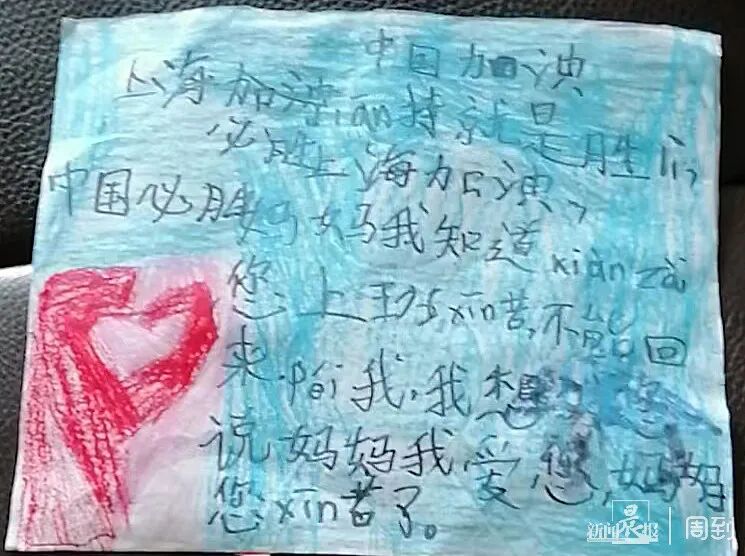 中国加油
上海加油jiān持就是胜lì,
必胜上海加油,
中国必胜
妈妈我知道xiàn zài
您上班xīn苦,不能回
来péi我,我想对您
说妈妈我爱您,妈妈
您xīn苦了。
新闻晨报 周到